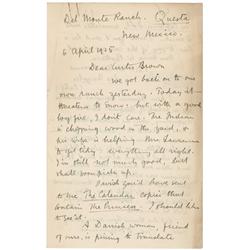 Del Monte Ranch. Questa
New Mexico.
6 April 1925
Dear Curtis Brown
We got back on to our
own ranch yesterday. Today it
threatens to snow: but with a good
log fire, I don't care. The Indian
is chopping wood in the yard, &
his wife is helping
everything all right.
I'm still not much good, but
shall soon pick up.
I wish you'd have sent
to me The Calendar copies that
contain The Princess. I should like
to see it.
A Danish woman, friend
of mine, is pining to translate